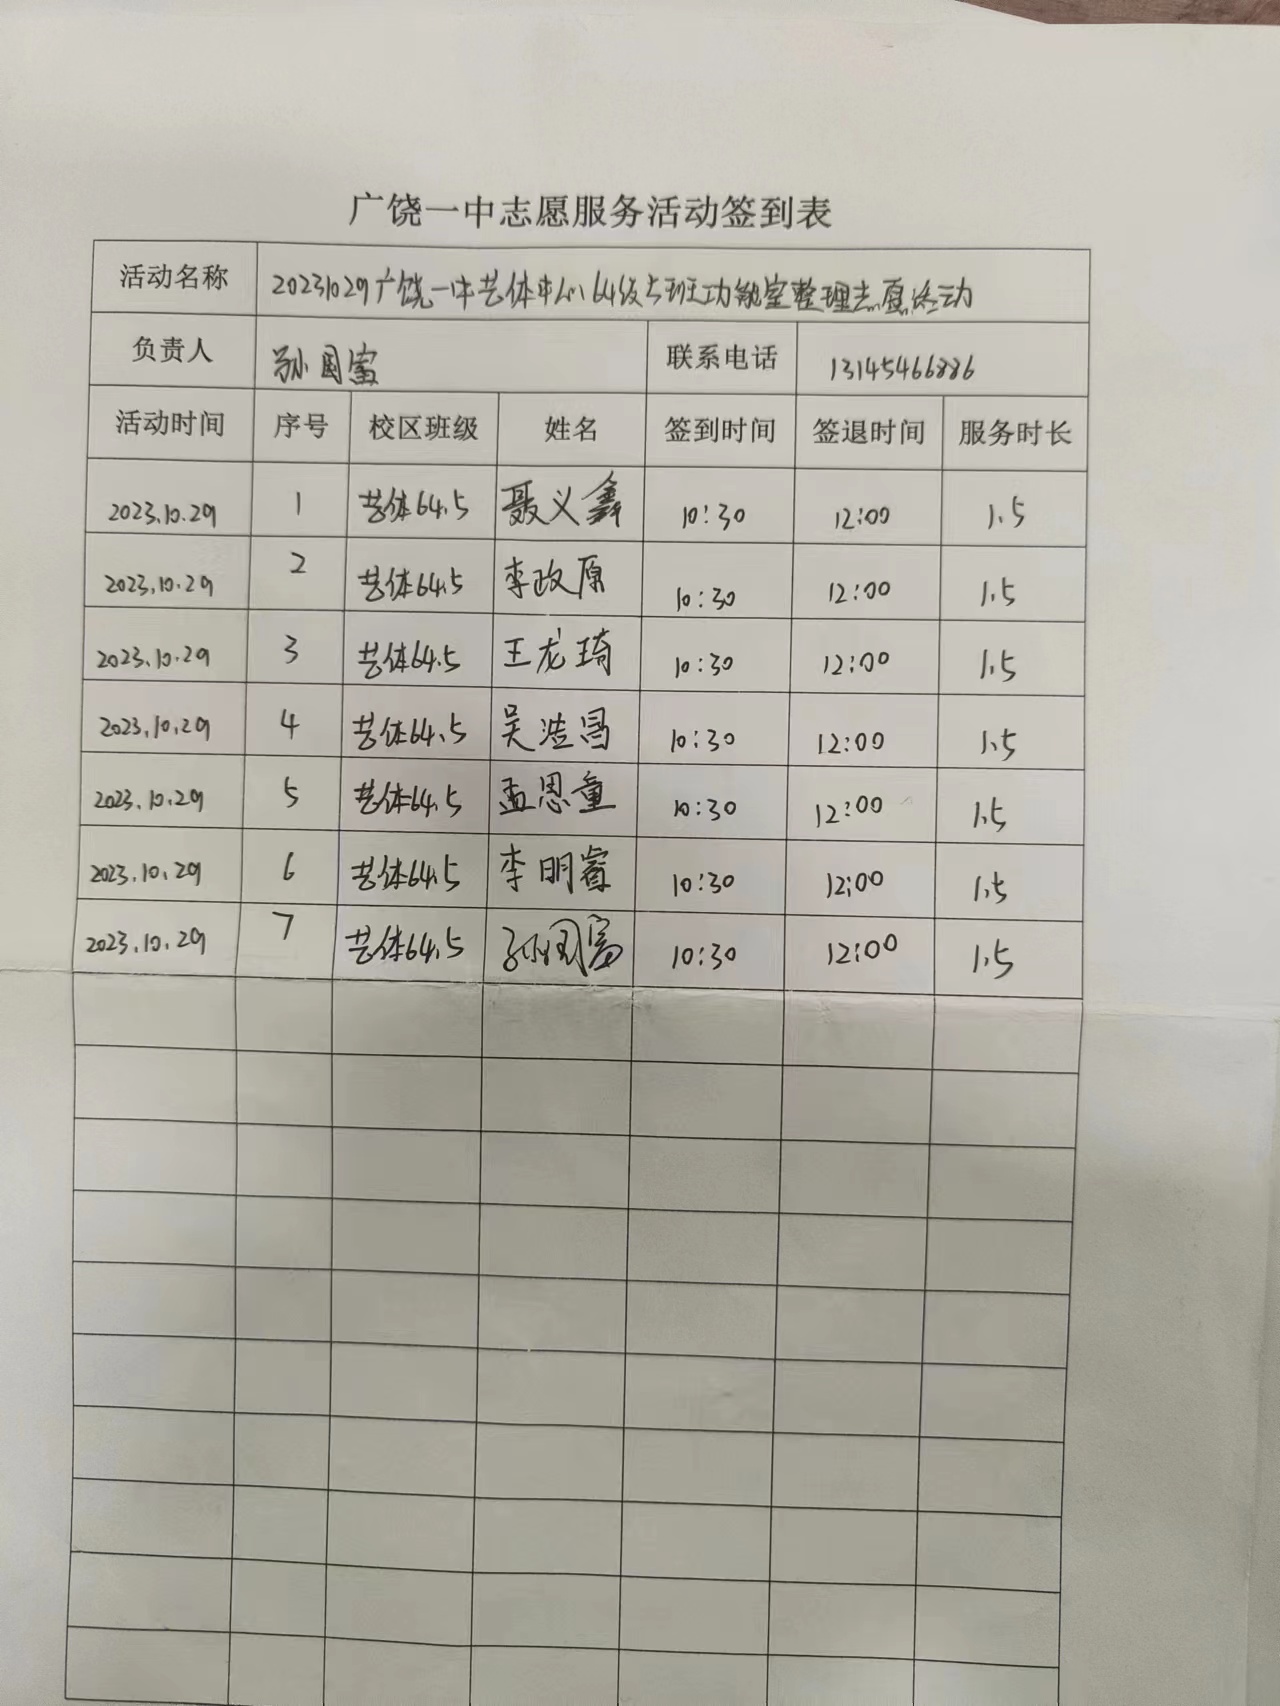 广饶一中志愿服务活动签到表
活动名称 20231029广饶一中艺体中心64级5班功能室整理志愿活动
负责人 孙国富 联系电话 13145466886
活动时间 序号 校区班级 姓名 签到时间 签退时间 服务时长
2023.10.29 1 艺体64.5 聂义鑫 10:30 12:00 1.5
2023.10.29 2 艺体64.5 李政原 10:30 12:00 1.5
2023.10.29 3 艺体64.5 王龙琦 10:30 12:00 1.5
2023.10.29 4 艺体64.5 吴浩昌 10:30 12:00 1.5
2023.10.29 5 艺体64.5 孟恩童 10:30 12:00 1.5
2023.10.29 6 艺体64.5 李明睿 10:30 12:00 1.5
2023.10.29 7 艺体64.5 孙国富 10:30 12:00 1.5